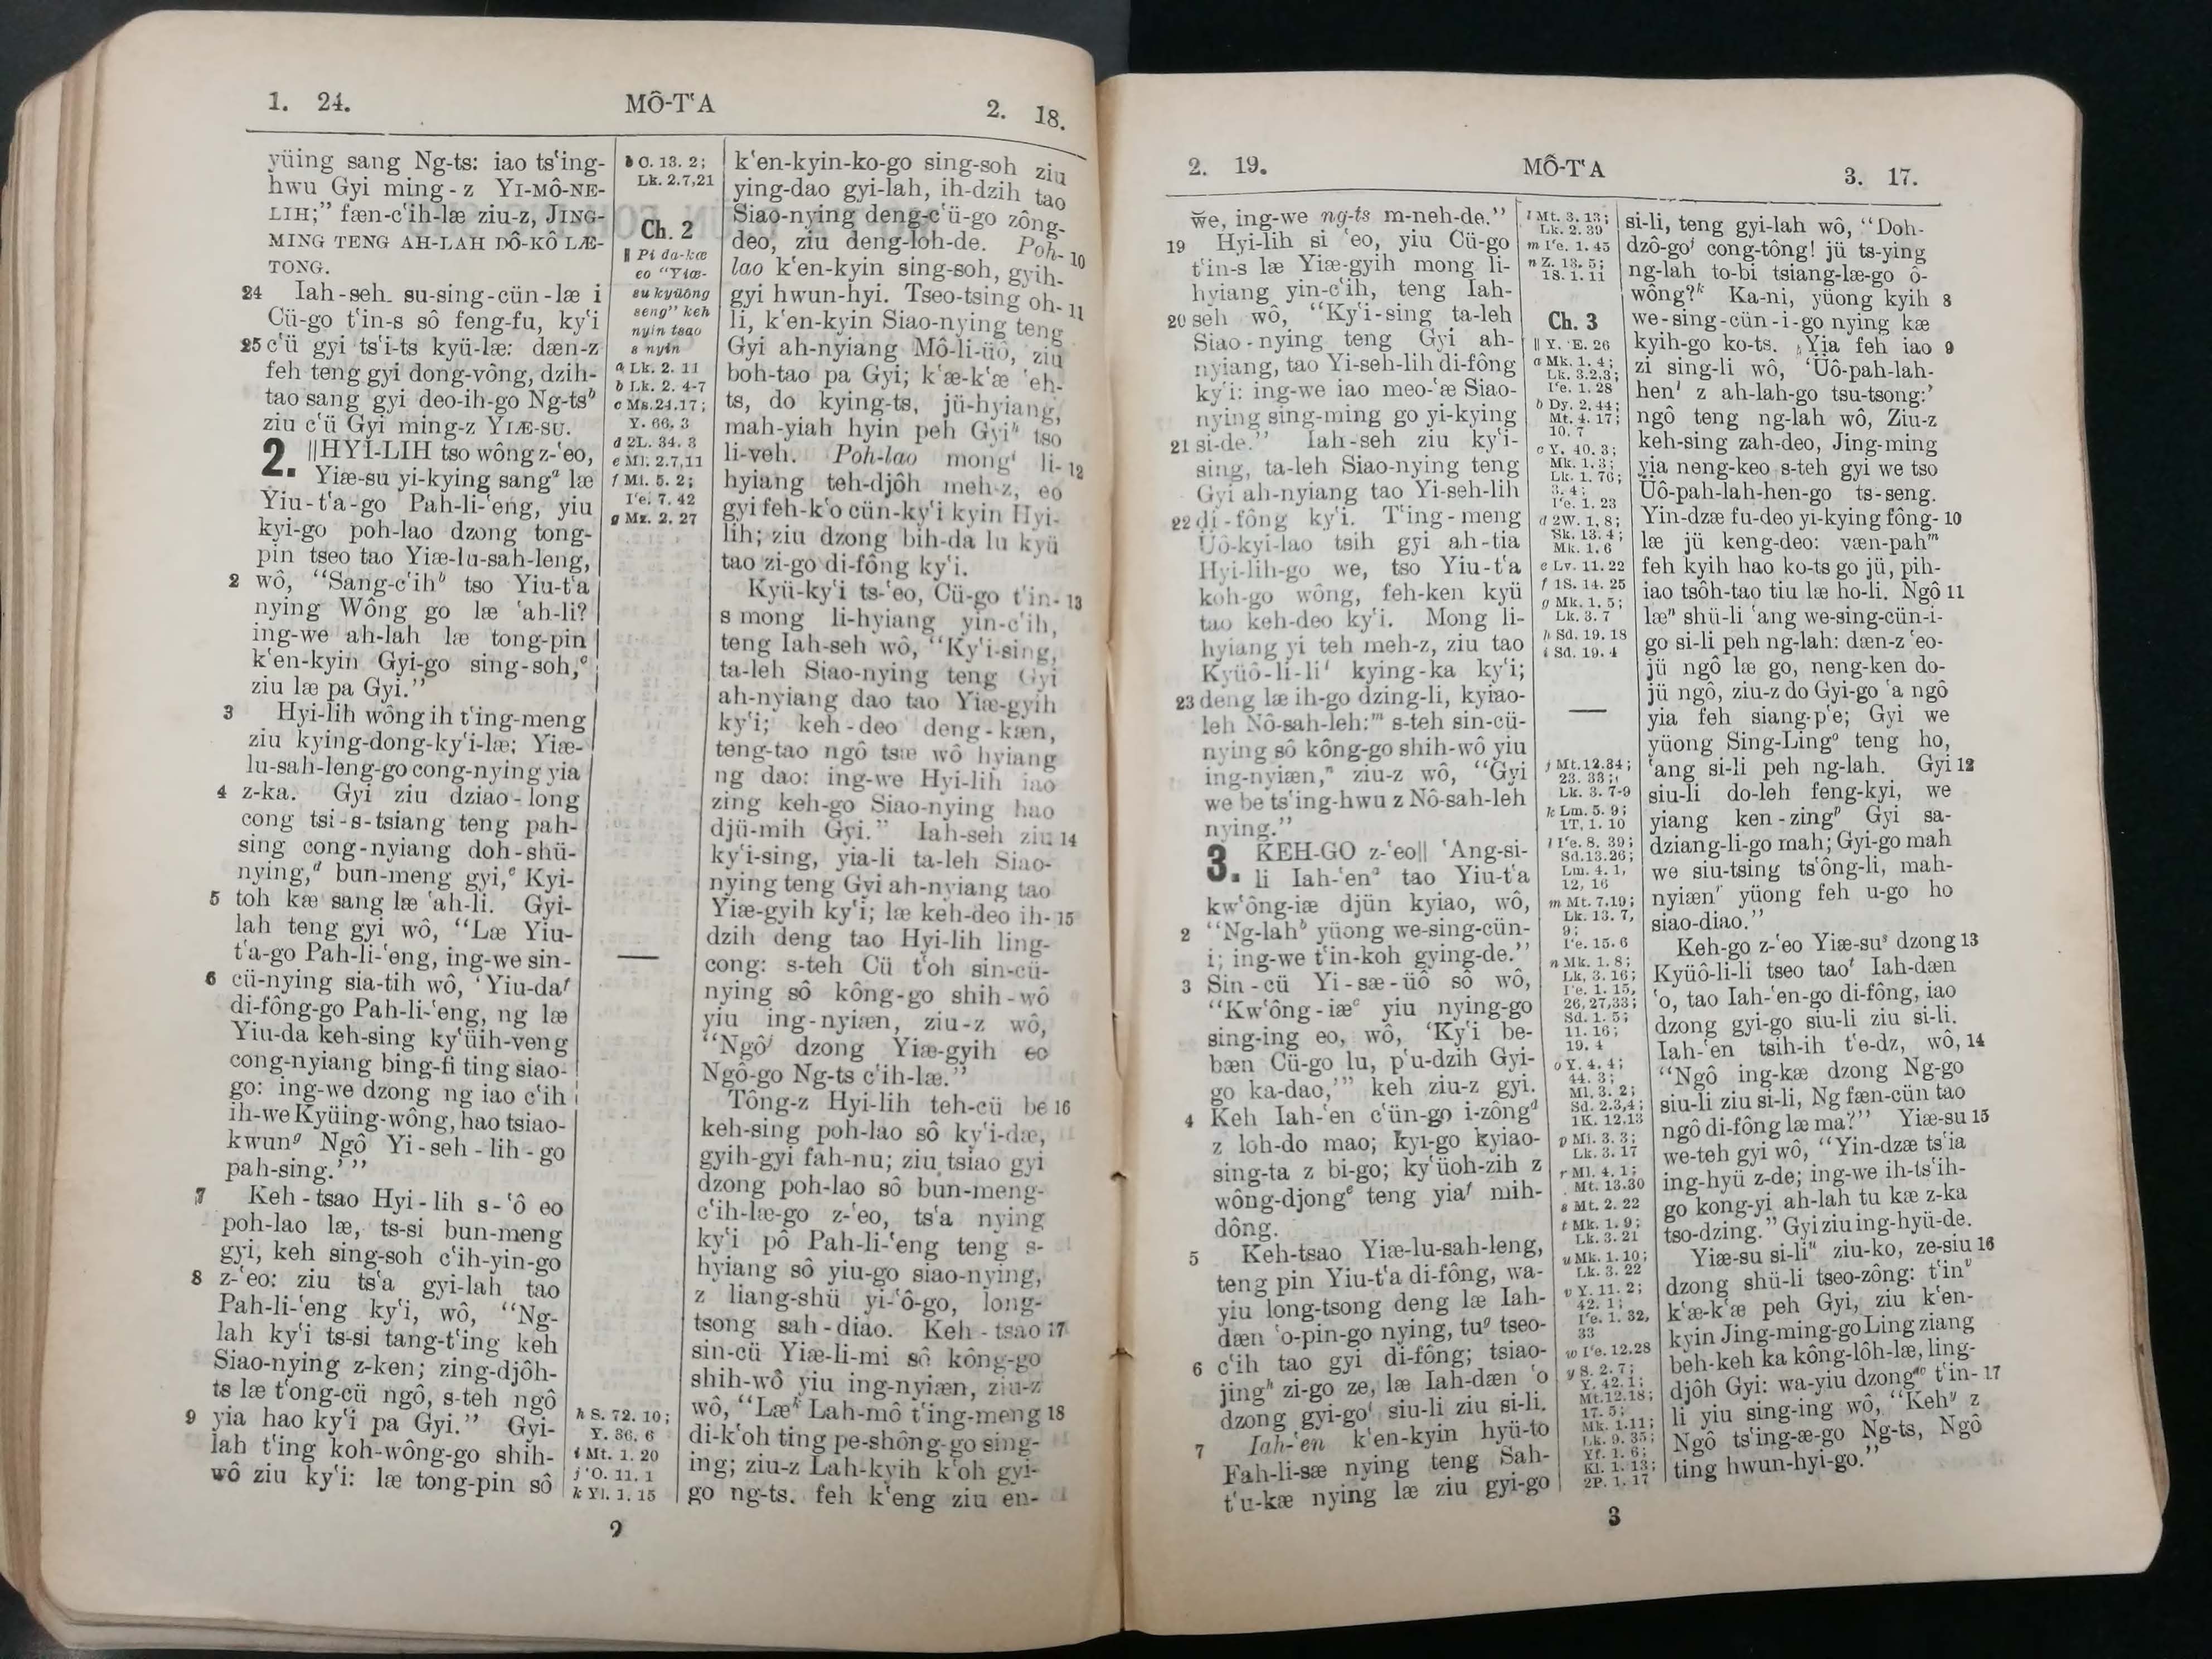 1. 24.
MÔ-TʻA
2. 18.
yüing sang Ng-ts: iao tsʻing-
hwu Gyi ming-z YI-MÔ-NE-
LIH;” fæn-cʻih-læ ziu-z, JING-
MING TENG AH-LAH DÔ-KÔ LÆ-
TONG.
24 Iah-seh su-sing-cün-læ i
Cü-go tʻin-s sô feng-fu, kyʻi
25 cʻü gyi tsʻi-ts kyü-læ: dæn-z
feh teng gyi dong-vông, dzih-
tao sang gyi deo-ih-go Ng-ts b
ziu cʻü Gyi ming-z YIÆ-SU.
2. ||HYI-LIH tso wông z-ʻeo,
Yiæ-su yi-kying sang a læ
Yiu-tʻa-go Pah-li-ʻeng, yiu
kyi-go poh-lao dzong tong-
pin tseo tao Yiæ-lu-sah-leng,
2 wô, “Sang-cʻih b tso Yiu-tʻa
nying Wông go læ ʻah-li?
ing-we ah-lah læ tong-pin
kʻen-kyin Gyi-go sing-soh, c
ziu læ pa Gyi.”
3 Hyi-lih wông ih tʻing-meng
ziu kying-dong-kyʻi-læ; Yiæ-
lu-sah-leng-go cong-nying yia
4 z-ka. Gyi ziu dziao-long
cong tsi-s-tsiang teng pah-
sing cong-nyiang doh-shü-
nying, d bun-meng gyi, e Kyi-
5 toh kæ sang læ ʻah-li. Gyi-
lah teng gyi wô, “Læ Yiu-
tʻa-go Pah-li-ʻeng, ing-we sin-
6 cü-nying sia-tih wô, ‘Yiu-da f
di-fông-go Pah-li-ʻeng, ng læ
Yiu-da keh-sing kyʻüih-veng
cong-nyiang bing-fi ting siao-
go: ing-we dzong ng iao cʻih
ih-we Kyüing-wông, hao tsiao-
kwun g Ngô Yi-seh-lih-go
pah-sing.’ ”
7 Keh-tsao Hyi-lih s-ʻô eo
poh-lao læ, ts-si bun-meng
gyi, keh sing-soh cʻih-yin-go
8 z-ʻeo: ziu tsʻa gyi-lah tao
Pah-li-ʻeng kyʻi, wô, “Ng-
lah kyʻi ts-si tang-tʻing keh
Siao-nying z-ken; zing-djôh-
ts læ tʻong-cü ngô, s-teh ngô
9 yia hao kyʻi pa Gyi.” Gyi-
lah tʻing koh-wông-go shih-
wô ziu kyʻi: læ tong-pin sô
b O. 13. 2;
Lk. 2.7,21
Ch. 2
|| Pi da-kæ
eo “Yiæ-
su kyüông
seng” keh
nyin tsao
s nyin
a Lk. 2. 11
b Lk. 2. 4-7
c Ms.24.17;
Y. 66. 3
d 2L. 34. 3
e Ml. 2.7,11
f Mi. 5. 2;
Iʻe. 7. 42
g Mz. 2. 27
h S. 72. 10;
Y. 36. 6
i Mt. 1. 20
j ʻO. 11. 1
k Yl. 1. 15
kʻen-kyin-ko-go sing-soh ziu
ying-dao gyi-lah, ih-dzih tao
Siao-nying deng-cʻü-go zông-
deo, ziu deng-loh-de. Poh- 10
lao kʻen-kyin sing-soh, gyih-
gyi hwun-hyi. Tseo-tsing oh- 11
li, kʻen-kyin Siao-nying teng
Gyi ah-nyiang Mô-li-üô, ziu
boh-tao pa Gyi; kʻæ-kʻæ ʻeh-
ts, do kying-ts, jü-hyiang,
mah-yiah hyin peh Gyi h tso
li-veh. Poh-lao mong i li- 12
hyiang teh-djôh meh-z, eo
gyi feh-kʻo cün-kyʻi kyin Hyi-
lih; ziu dzong bih-da lu kyü
tao zi-go di-fông kyʻi.
Kyü-kyʻi ts-ʻeo, Cü-go tʻin- 13
s mong li-hyiang yin-cʻih,
teng Iah-seh wô, “Kyʻi-sing,
ta-leh Siao-nying teng Gyi
ah-nyiang dao tao Yiæ-gyih
kyʻi; keh-deo deng-kæn,
teng-tao ngô tsæ wô hyiang
ng dao: ing-we Hyi-lih iao
zing keh-go Siao-nying hao
djü-mih Gyi.” Iah-seh ziu 14
kyʻi-sing, yia-li ta-leh Siao-
nying teng Gyi ah-nyiang tao
Yiæ-gyih kyʻi; læ keh-deo ih- 15
dzih deng tao Hyi-lih ling-
cong: s-teh Cü tʻoh sin-cü-
nying sô kông-go shih-wô
yiu ing-nyiæn, ziu-z wô,
“Ngô j dzong Yiæ-gyih eo
Ngô-go Ng-ts cʻih-læ.”
Tông-z Hyi-lih teh-cü be 16
keh-sing poh-lao sô kyʻi-dæ,
gyih-gyi fah-nu; ziu tsiao gyi
dzong poh-lao sô bun-meng-
cʻih-læ-go z-ʻeo, tsʻa nying
kyʻi pô Pah-li-ʻeng teng s-
hyiang sô yiu-go siao-nying,
z liang-shü yi-ʻô-go, long-
tsong sah-diao. Keh-tsao 17
sin-cü Yiæ-li-mi sô kông-go
shih-wô yiu ing-nyiæn, ziu-z
wô, “Læ k Lah-mô tʻing-meng 18
di-kʻoh ting pe-shông-go sing-
ing; ziu-z Lah-kyih kʻoh gyi-
go ng-ts. feh kʻeng ziu en-
2
2. 19.
MÔ-TʻA
3. 17.
we, ing-we ng-ts m-neh-de.”
19 Hyi-lih si ʻeo, yiu Cü-go
tʻin-s læ Yiæ-gyih mong li-
hyiang yin-cʻih, teng Iah-
20 seh wô, “Kyʻi-sing ta-leh
Siao-nying teng Gyi ah-
nyiang, tao Yi-seh-lih di-fông
kyʻi: ing-we iao meo-ʻæ Siao-
nying sing-ming go yi-kying
21 si-de.” Iah-seh ziu kyʻi-
sing, ta-leh Siao-nying teng
Gyi ah-nyiang tao Yi-seh-lih
22 di-fông kyʻi. Tʻing-meng
Üô-kyi-lao tsih gyi ah-tia
Hyi-lih-go we, tso Yiu-tʻa
koh-go wông, feh-ken kyü
tao keh-deo kyʻi. Mong li-
hyiang yi teh meh-z, ziu tao
Kyüô-li-li l kying-ka kyʻi;
23 deng læ ih-go dzing-li, kyiao-
leh Nô-sah-leh: m s-teh sin-cü-
nying sô kông-go shih-wô yiu
ing-nyiæn, n ziu-z wô, “Gyi
we be tsʻing-hwu z Nô-sah-leh
nying.”
3. KEH-GO z-ʻeo|| ʻAng-si-
li Iah-ʻen a tao Yiu-tʻa
kwʻông-iæ djün kyiao, wô,
2 “Ng-lah b yüong we-sing-cün-
i; ing-we tʻin-koh gying-de.”
3 Sin-cü Yi-sæ-üô sô wô,
“Kwʻông-iæ c yiu nying-go
sing-ing eo, wô, ‘Kyʻi be-
bæn Cü-go lu, pʻu-dzih Gyi-
go ka-dao,’” keh ziu-z gyi.
4 Keh Iah-ʻen cʻün-go i-zông d
z loh-do mao; kyi-go kyiao-
sing-ta z bi-go; kyʻüoh-zih z
wông-djong e teng yia f mih-
dông.
5 Keh-tsao Yiæ-lu-sah-leng,
teng pin Yiu-tʻa di-fông, wa-
yiu long-tsong deng læ Iah-
dæn ʻo-pin-go nying, tu g tseo-
6 cʻih tao gyi di-fông; tsiao-
jing h zi-go ze, læ Iah-dæn ʻo
dzong gyi-go i siu-li ziu si-li.
7 Iah-ʻen kʻen-kyin hyü-to
Fah-li-sæ nying teng Sah-
tʻu-kæ nying læ ziu gyi-go
l Mt. 3. 13;
Lk. 2. 39
m Iʻe. 1. 45
n Z. 13. 5;
1S. 1. 11
Ch. 3
|| Y. ʻE. 26
a Mk. 1. 4;
Lk. 3.2,3;
Iʻe. 1. 28
b Dy. 2. 44;
Mt. 4. 17;
10. 7
c Y. 40. 3;
Mk. 1. 3;
Lk. 1. 76;
3. 4;
Iʻe. 1. 23
d 2W. 1. 8;
Sk. 13. 4;
Mk. 1. 6
e Lv. 11. 22
f 1S. 14. 25
g Mk. 1. 5;
Lk. 3. 7
h Sd. 19. 18
i Sd. 19. 4
j Mt.12.34;
23. 33;
Lk. 3. 7-9
k Lm. 5. 9;
1T. 1. 10
l Iʻe. 8. 39;
Sd.13.26;
Lm. 4. 1,
12, 16
m Mt. 7.19;
Lk. 13. 7,
9;
Iʻe. 15. 6
n Mk. 1. 8;
Lk. 3. 16;
Iʻe. 1. 15,
26,27,33;
Sd. 1. 5;
11. 16;
19. 4
o Y. 4. 4;
44. 3;
Ml. 3. 2;
Sd. 2.3,4;
1K. 12.13
p Ml. 3. 3;
Lk. 3. 17
r Ml. 4. 1;
Mt. 13.30
s Mt. 2. 22
t Mk. 1. 9;
Lk. 3. 21
u Mk. 1. 10;
Lk. 3. 22
v Y. 11. 2;
42. 1;
Iʻe. 1. 32,
33
w Iʻe. 12.28
y S. 2. 7;
Y. 42. 1;
Mt.12.18;
17. 5;
Mk. 1.11;
Lk. 9. 35;
Yf. 1. 6;
Kl. 1. 13;
2P. 1. 17
si-li, teng gyi-lah wô, “Doh-
dzô-go j cong-tông! jü ts-ying
ng-lah to-bi tsiang-læ-go ô-
wông? k Ka-ni, yüong kyih 8
we-sing-cün-i-go nying kæ
kyih-go ko-ts. Yia feh iao 9
zi sing-li wô, ‘Üô-pah-lah-
hen l z ah-lah-go tsu-tsong:’
ngô teng ng-lah wô, Ziu-z
keh-sing zah-deo, Jing-ming
yia neng-keo s-teh gyi we tso
Üô-pah-lah-hen-go ts-seng.
Yin-dzæ fu-deo yi-kying fông- 10
læ jü keng-deo: væn-pah m
feh kyih hao ko-ts go jü, pih-
iao tsôh-tao tiu læ ho-li. Ngô 11
læ n shü-li ʻang we-sing-cün-i-
go si-li peh ng-lah: dæn-z ʻeo-
jü ngô læ go, neng-ken do-
jü ngô, ziu-z do Gyi-go ʻa ngô
yia feh siang-pʻe; Gyi we
yüong Sing-Ling o teng ho,
ʻang si-li peh ng-lah. Gyi 12
siu-li do-leh feng-kyi, we
yiang ken-zing p Gyi sa-
dziang-li-go mah; Gyi-go mah
we siu-tsing tsʻông-li, mah-
nyiæn r yüong feh u-go ho
siao-diao.”
Keh-go z-ʻeo Yiæ-su s dzong 13
Kyüô-li-li tseo tao t Iah-dæn
ʻo, tao Iah-ʻen-go di-fông, iao
dzong gyi-go siu-li ziu si-li.
Iah-ʻen tsih-ih tʻe-dz, wô, 14
“Ngô ing-kæ dzong Ng-go
siu-li ziu si-li, Ng fæn-cün tao
ngô di-fông læ ma?” Yiæ-su 15
we-teh gyi wô, “Yin-dzæ tsʻia
ing-hyü z-de; ing-we ih-tsʻih-
go kong-yi ah-lah tu kæ z-ka
tso-dzing.” Gyi ziu ing-hyü-de.
Yiæ-su si-li u ziu-ko, ze-siu 16
dzong shü-li tseo-zông: tʻin v
kʻæ-kʻæ peh Gyi, ziu kʻen-
kyin Jing-ming-go Ling ziang
beh-keh ka kông-lôh-læ, ling-
djôh Gyi: wa-yiu dzong w tʻin- 17
li yiu sing-ing wô, “Keh y z
Ngô tsʻing-æ-go Ng-ts, Ngô
ting hwun-hyi-go.”
3